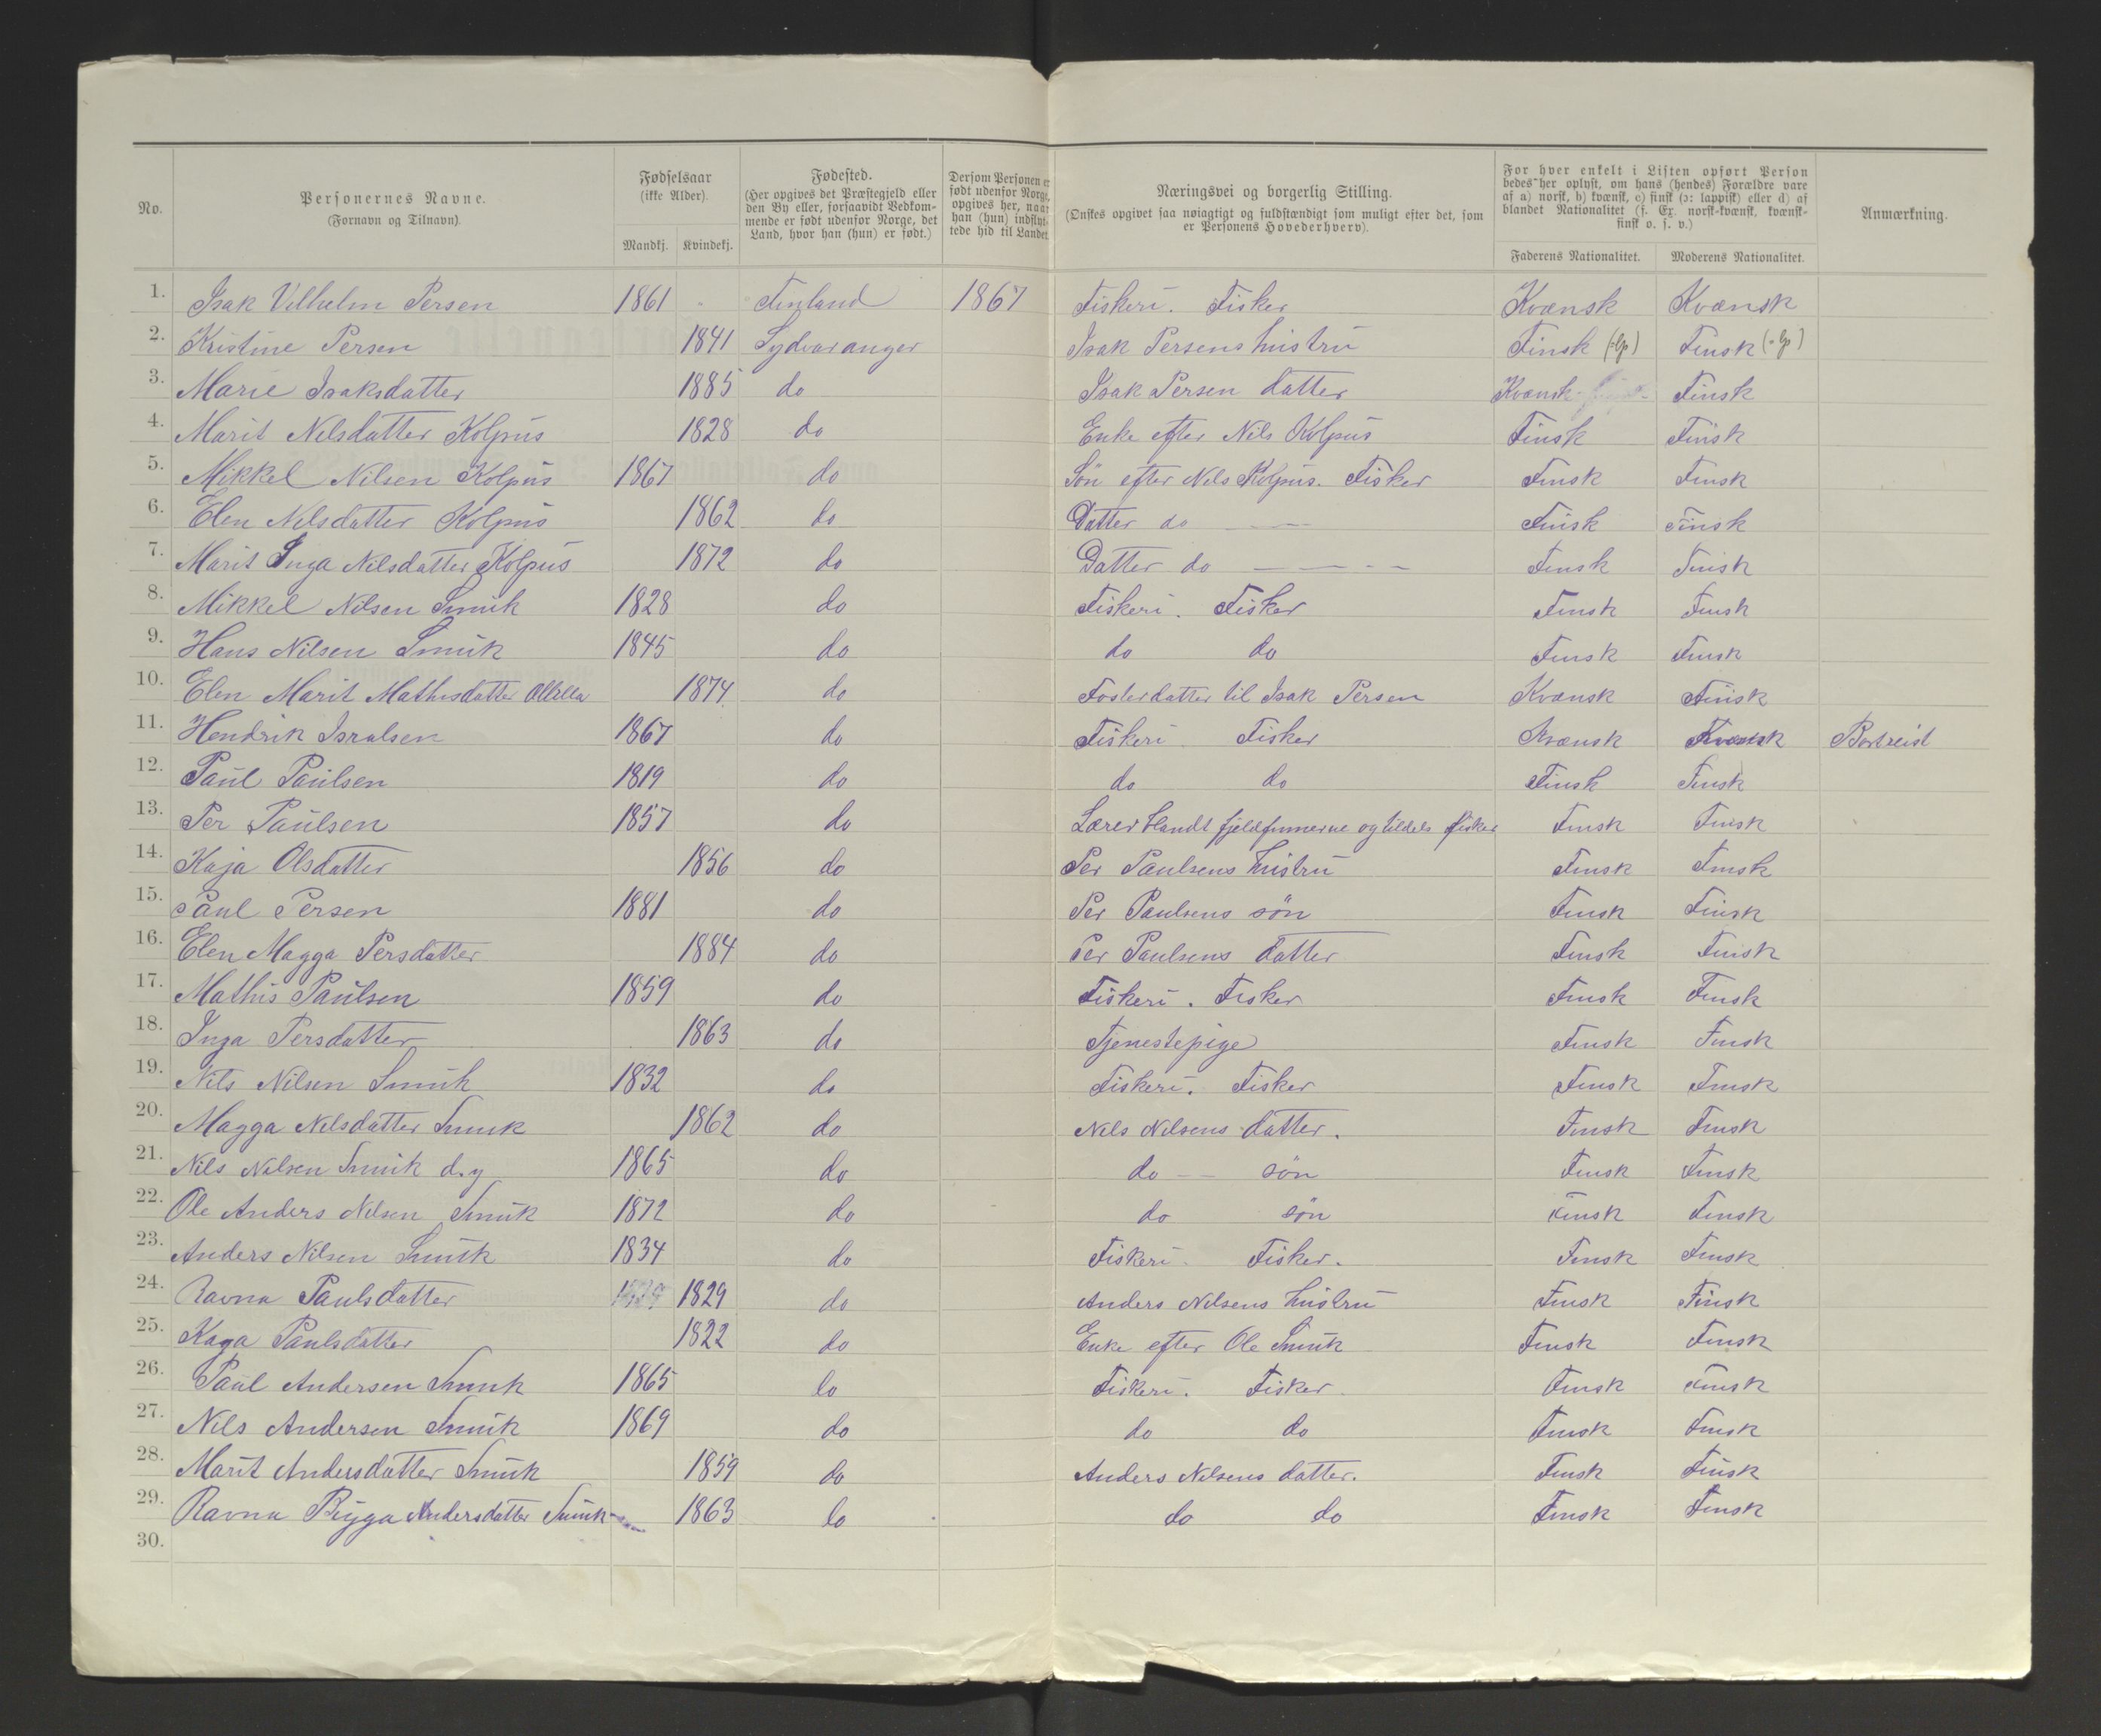 No.
Personernes Navne.
(Fornavn og Tilnavn).
Fødselsaar
(ikke Alder).
Mandkj. Kvindekj.
Fødested.
(Her opgives det Præstegjeld eller
den By eller, forsaavidt Vedkom-
mende er født udenfor Norge, det
Land, hvor han (hun) er født.)
Dersom Personen er
født udenfor Norge,
opgives her, naar
han (hun) indflyt-
tede hid til Landet.
Næringsvei og borgerlig Stilling.
(Ønskes opgivet saa nøiagtigt og fuldstændigt som muligt efter det, som
er Personens Hovederhverv).
For hver enkelt i Listen opført Person
bedes her oplyst, om hans (hendes) Forældre vare
af a) norsk, b) kvænsk, c) finsk (ɔ: lappisk) eller d) af
blandet Nationalitet (f. Ex. norsk-kvænsk, kvænsk-
finsk o. s. v.)
Faderens Nationalitet. Moderens Nationalitet.
Anmærkning.
1. Isak Vilhelm Persen 1861 Finland 1867 Fiskeri. Fisker Kvænsk Kvænsk
2. Kristine Persen 1841 Sydvaranger Isak Persens hustru Finsk (=lp) Finsk (=lp)
3. Marie Isaksdatter 1885 do Isak Persen datter Kvænsk Finsk
4. Marit Nilsdatter Kolpus 1828 do Enke efter Nils Kolpus Finsk Finsk
5. Mikkel Nilsen Kolpus 1867 do Søn efter Nils Kolpus. Fisker Finsk Finsk
6. Elen Nilsdatter Kolpus 1862 do Datter do — Finsk Finsk
7. Marit Inga Nilsdatter Kolpus 1872 do Datter do — — - - Finsk Finsk
8. Mikkel Nilsen Smuk 1828 do Fiskeri. Fisker Finsk Finsk
9. Hans Nilsen Smuk 1845 do do do Finsk Finsk
10. Elen Marit Mathisdatter 1874 do Fosterdatter til Isak Persen Kvænsk Finsk
11. Hendrik Isralsen 1867 do Fiskeri Fisker Kvænsk Kvænsk Bortreist
12. Paul Paulsen 1819 do do do Finsk Finsk
13. Per Paulsen 1857 do Lærer blandt fjeldfinnerne og tildels fisker Finsk Finsk
14. Kaja Olsdatter 1856 do Per Paulsens hustru Finsk Finsk
15. Paul Persen 1881 do Per Paulsens søn Finsk Finsk
16. Elen Magga Persdatter 1884 do Per Paulsens datter Finsk Finsk
17. Mathis Paulsen 1859 do Fiskeri. Fisker Finsk Finsk
18. Inga Persdatter 1863 do Tjenestepige Finsk Finsk
19. Nils Nilsen Smuk 1832 do Fiskeri. Fisker Finsk Finsk
20. Magga Nilsdatter Smuk 1862 do Nils Nilsens datter. Finsk Finsk
21. Nils Nilsen Smuk d.y 1865 do do - - søn Finsk Finsk
22. Ole Anders Nilsen Smuk 1872 do do søn Finsk Finsk
23. Anders Nilsen Smuk 1834 do Fiskeri Fisker. Finsk Finsk
24. Ravna Paulsdatter 1829 do Anders Nilsens hustru Finsk Finsk
25. Kaga Paulsdatter 1822 do Enke efter Ole Smuk Finsk Finsk
26. Paul Andersen Smuk 1865 do Fiskeri. Fisker Finsk Finsk
27. Nils Andersen Smuk 1869 do do do Finsk Finsk
28. Marit Andersdatter Smuk 1859 do Anders Nilsens datter. Finsk Finsk
29. Ravna Andersdatter Smuk 1863 do do do Finsk Finsk
30.